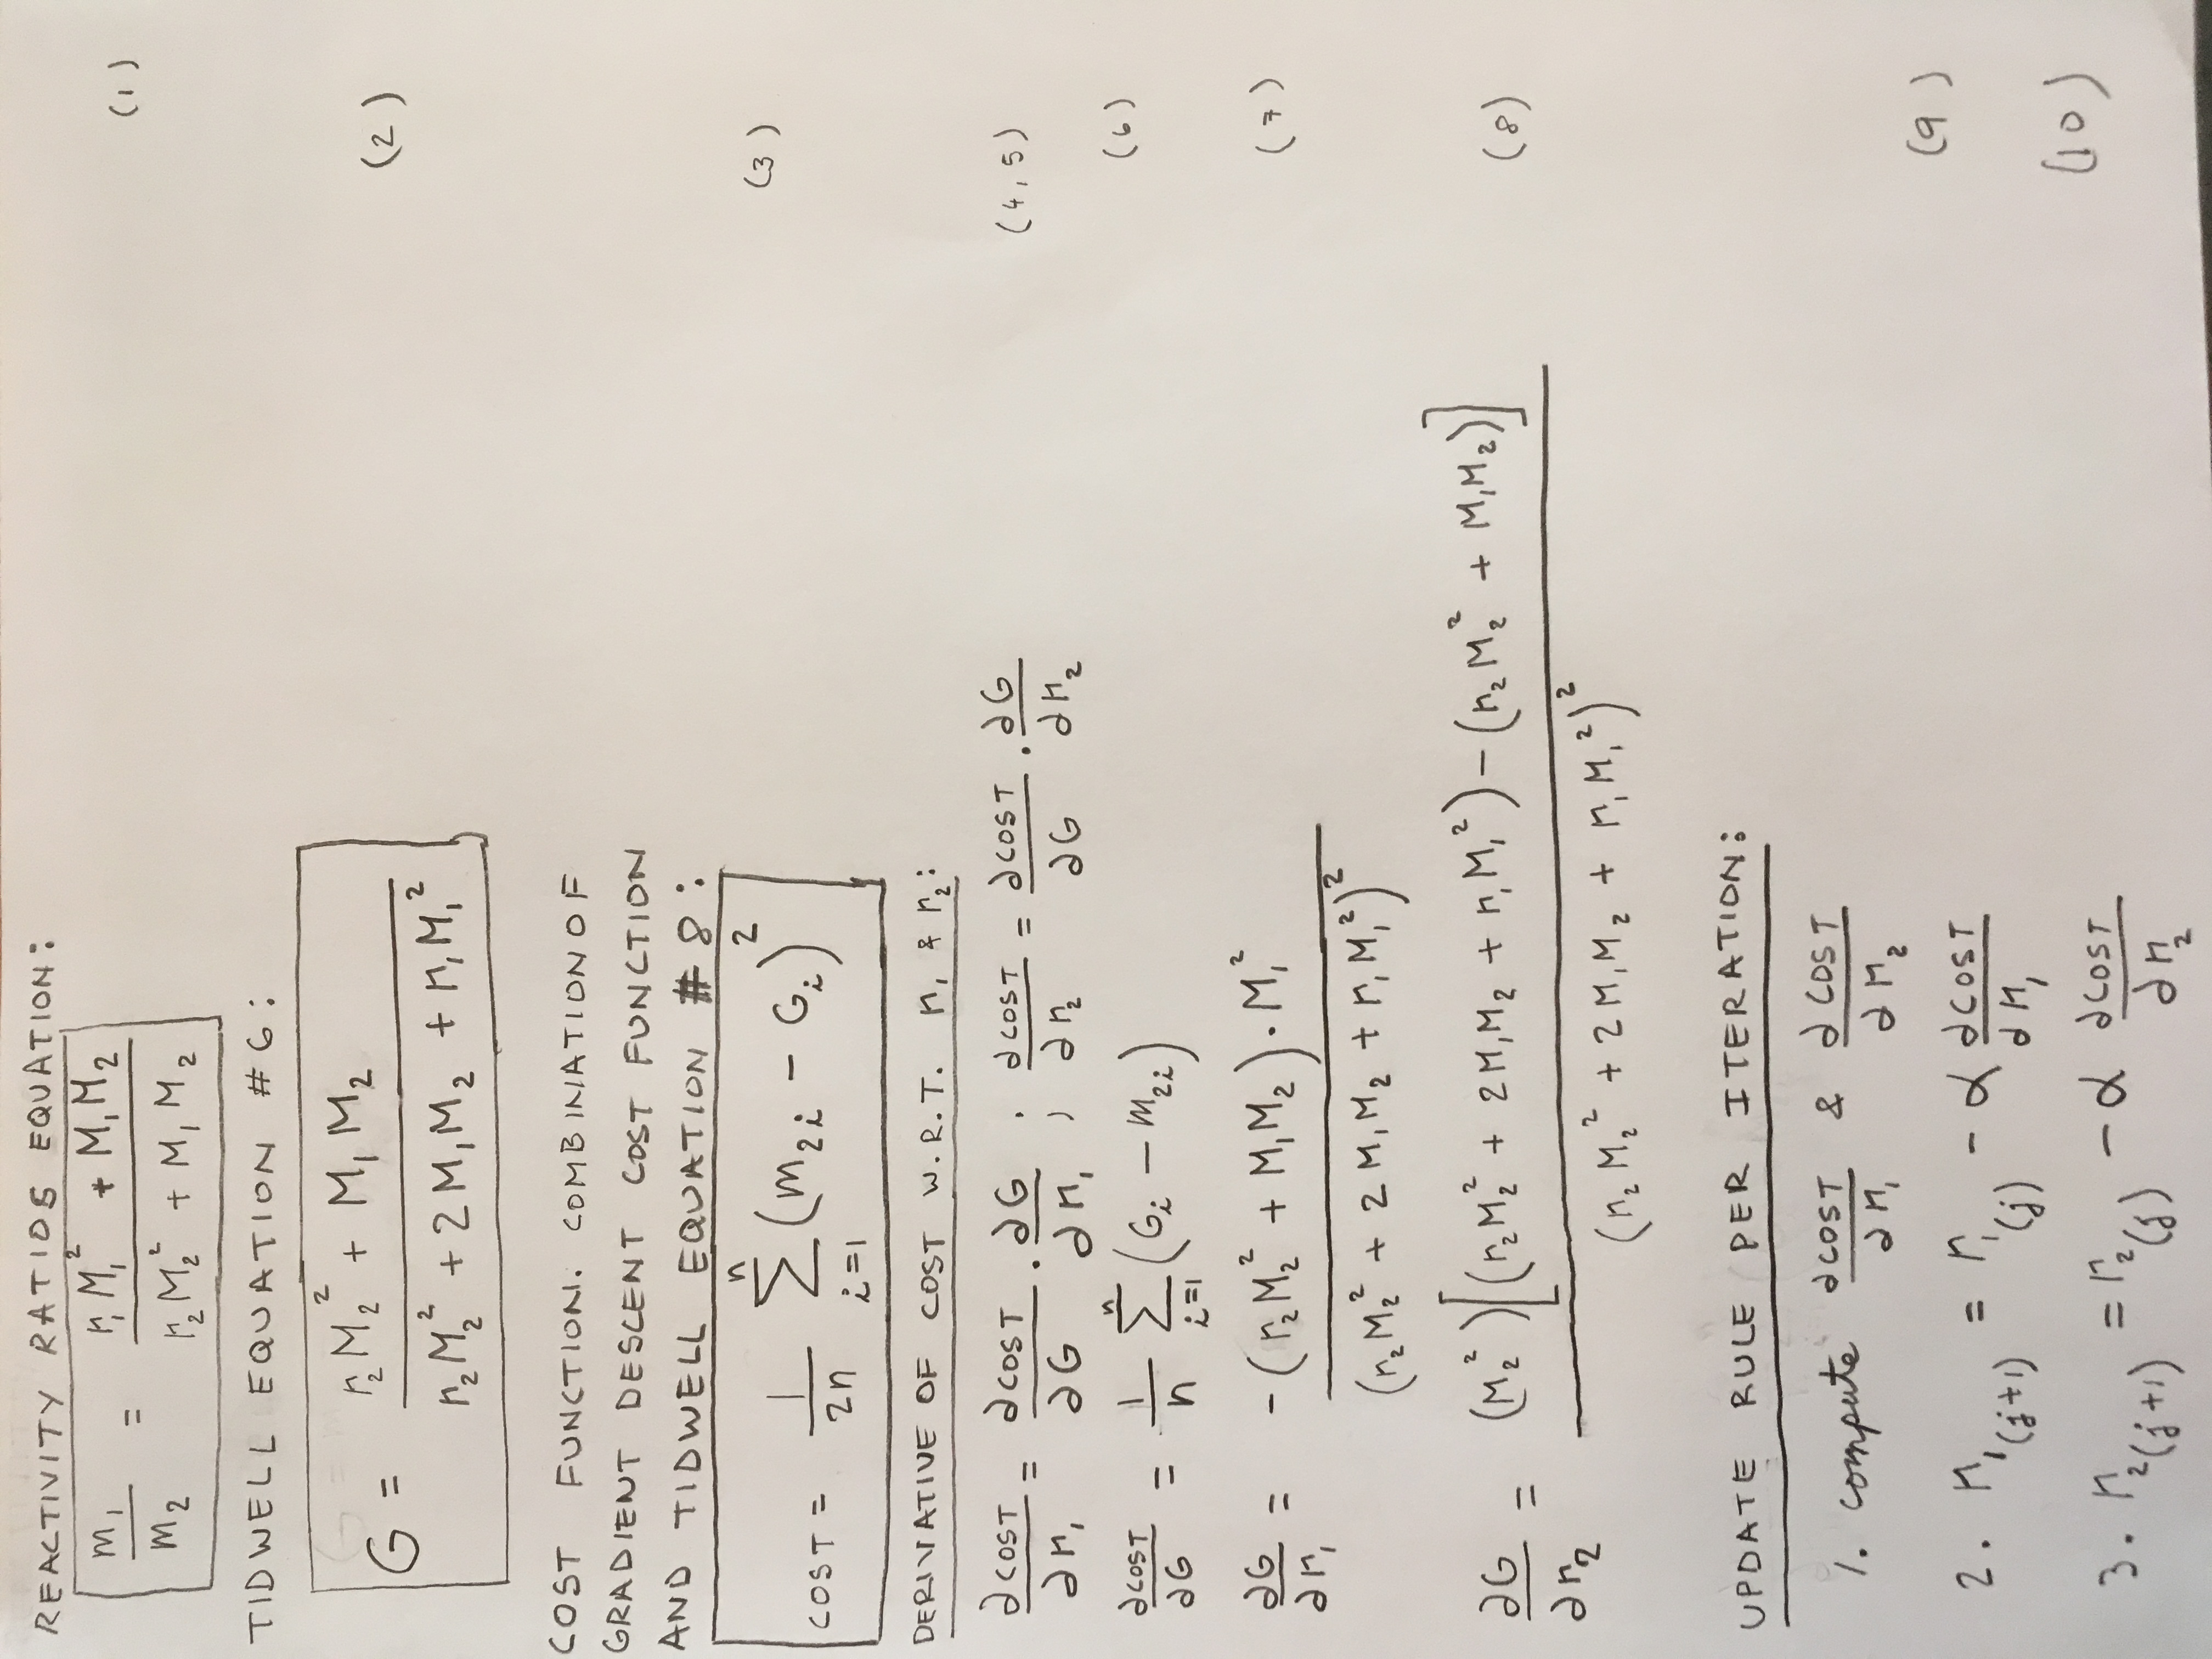 REACTIVITY RATIOS EQUATION:
m₁/m₂ = (r₁M₁² + M₁M₂)/(r₂M₂² + M₁M₂) (1)
TIDWELL EQUATION #6:
G = (r₂M₂² + M₁M₂)/(r₂M₂² + 2M₁M₂ + r₁M₁²) (2)
COST FUNCTION. COMBINATION OF
GRADIENT DESCENT COST FUNCTION
AND TIDWELL EQUATION #8:
COST = 1/2n ∑ⁿᵢ₌₁ (m₂ᵢ - Gᵢ)² (3)
DERIVATIVE OF COST W.R.T. r₁ & r₂:
∂COST/∂r₁ = ∂COST/∂G · ∂G/∂r₁ ; ∂COST/∂r₂ = ∂COST/∂G · ∂G/∂r₂ (4,5)
∂COST/∂G = 1/n ∑ⁿᵢ₌₁ (Gᵢ - m₂ᵢ) (6)
∂G/∂r₁ = -(r₂M₂² + M₁M₂)·M₁²/(r₂M₂² + 2M₁M₂ + r₁M₁²)² (7)
∂G/∂r₂ = (M₂²)[(r₂M₂² + 2M₁M₂ + r₁M₁²) - (r₂M₂² + M₁M₂)]/(r₂M₂² + 2M₁M₂ + r₁M₁²)² (8)
UPDATE RULE PER ITERATION:
1. compute ∂COST/∂r₁ & ∂COST/∂r₂
2. r₁₍ⱼ₊₁₎ = r₁₍ⱼ₎ - α ∂COST/∂r₁ (9)
3. r₂₍ⱼ₊₁₎ = r₂₍ⱼ₎ - α ∂COST/∂r₂ (10)